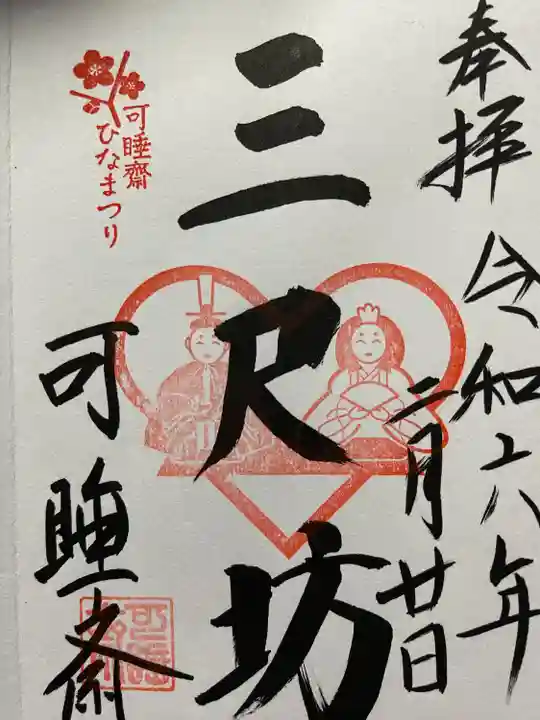 奉拝
令和六年
二月廿日
三尺坊
可睡齋
ひなまつり
可睡斎